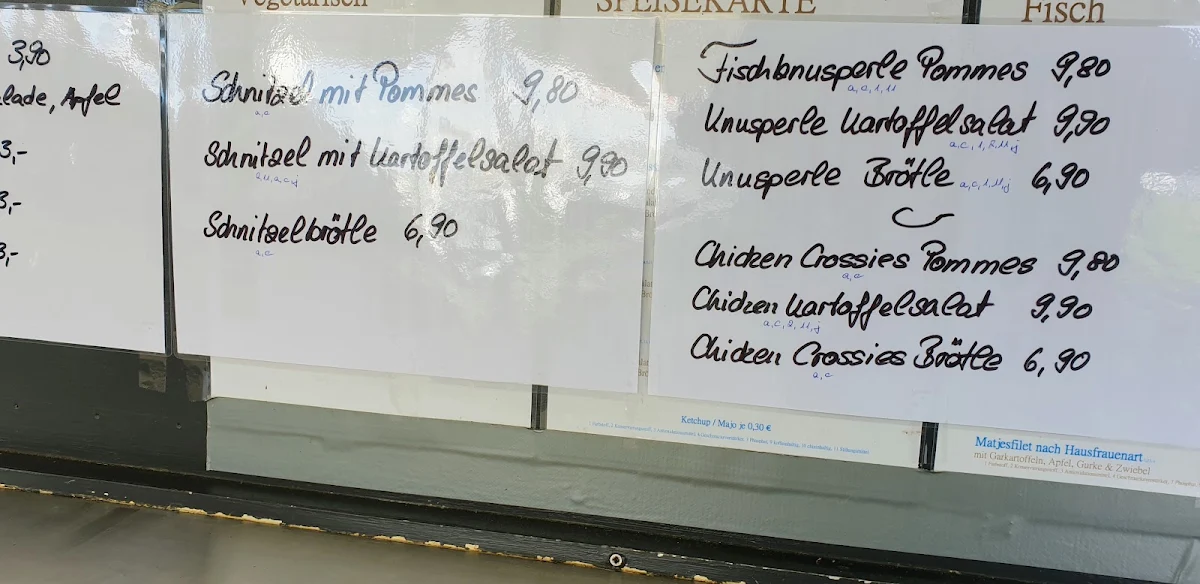 Vegetarisch
SPEISEKARTE
Fisch
3,90
lade, Apfel
3,-
3,-
3,-
Schnitzel mit Pommes 9,80
a,c
Schnitzel mit Kartoffelsalat 9,90
Schnitzelbrötle 6,90
a,c
Fischknusperle Pommes 9,80
Knusperle Kartoffelsalat 9,90
Knusperle Brötle a,c,1,11,j 6,90
Chicken Crossies Pommes 9,80
a,c
Chicken Kartoffelsalat 9,90
a,c,2,11,j
Chicken Crossies Brötle 6,90
a,c
Ketchup / Majo je 0,30 €
Matjesfilet nach Hausfrauenart
mit Garkartoffeln, Apfel, Gurke & Zwiebel